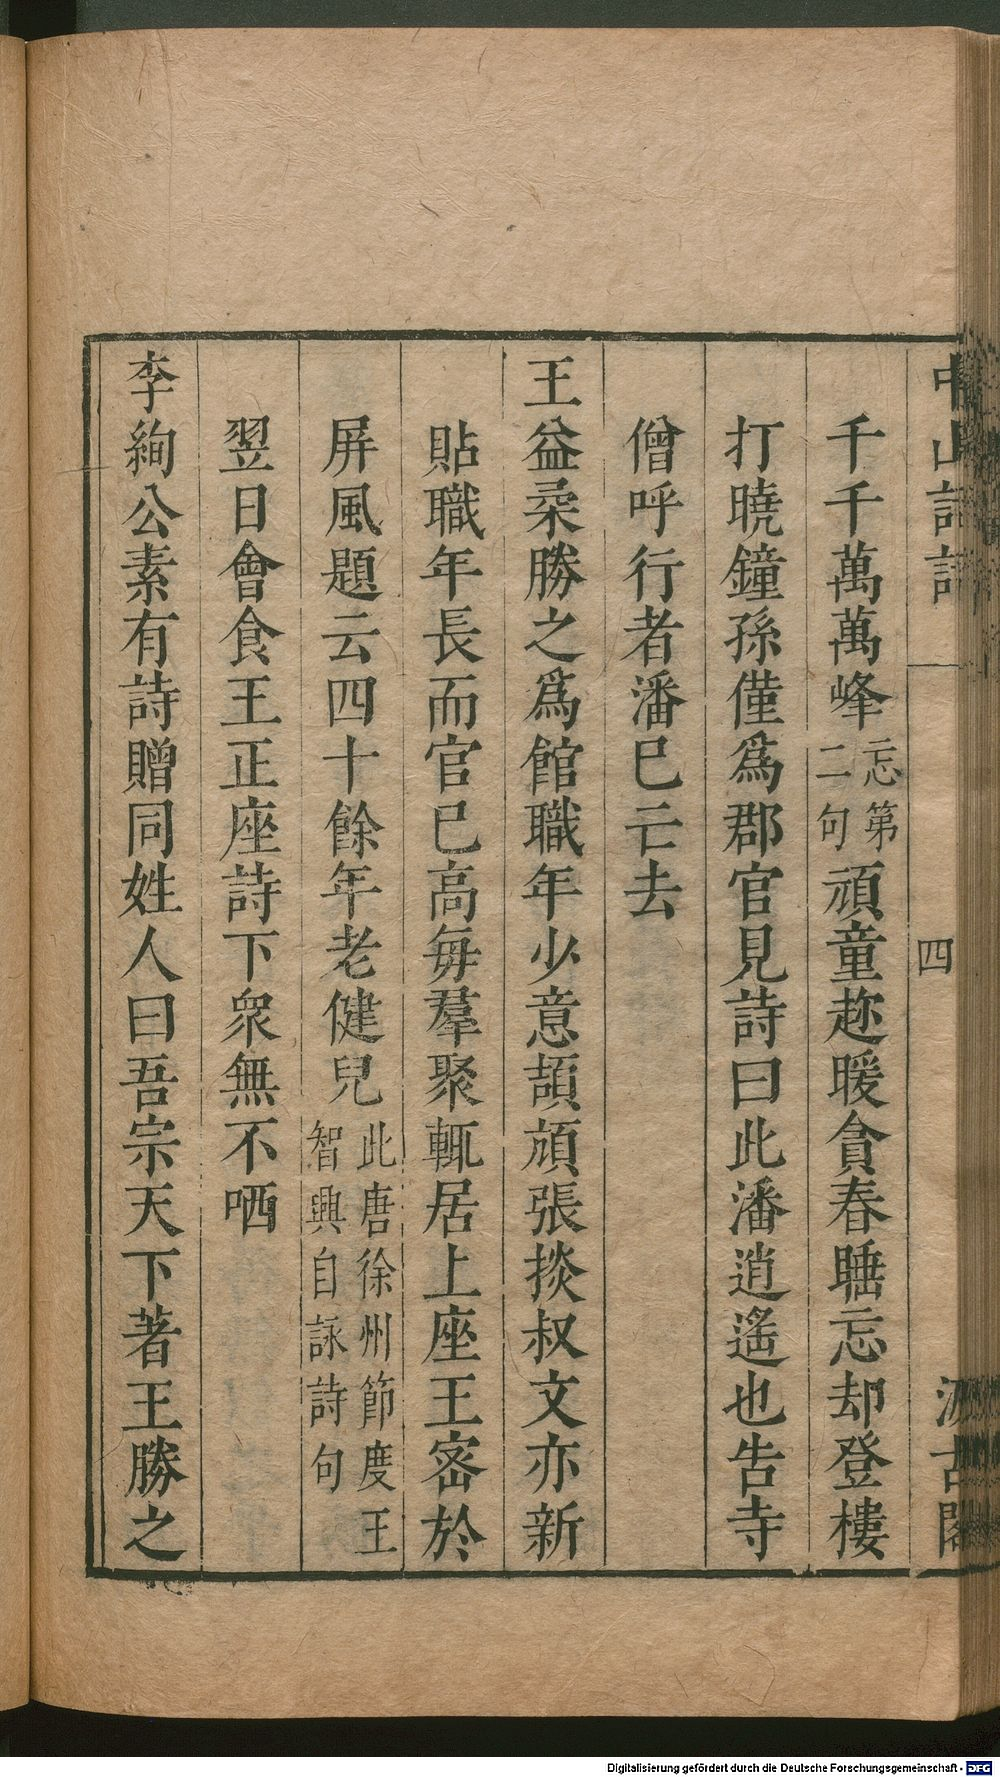 中山詩話
四
汲古閣
千千萬萬峰忘第二句頑童趂暖貪春睡忘却登樓
打曉鐘孫僅爲郡官見詩曰此潘逍遙也告寺
僧呼行者潘已亡去
王益柔勝之爲館職年少意頡頏張掞叔文亦新
貼職年長而官已高每羣聚輒居上座王密於
屏風題云四十餘年老健兒此唐徐州節度王智興自詠詩句
翌日會食王正座詩下衆無不哂
李絢公素有詩贈同姓人曰吾宗天下著王勝之
Digitalisierung gefördert durch die Deutsche Forschungsgemeinschaft - DFG